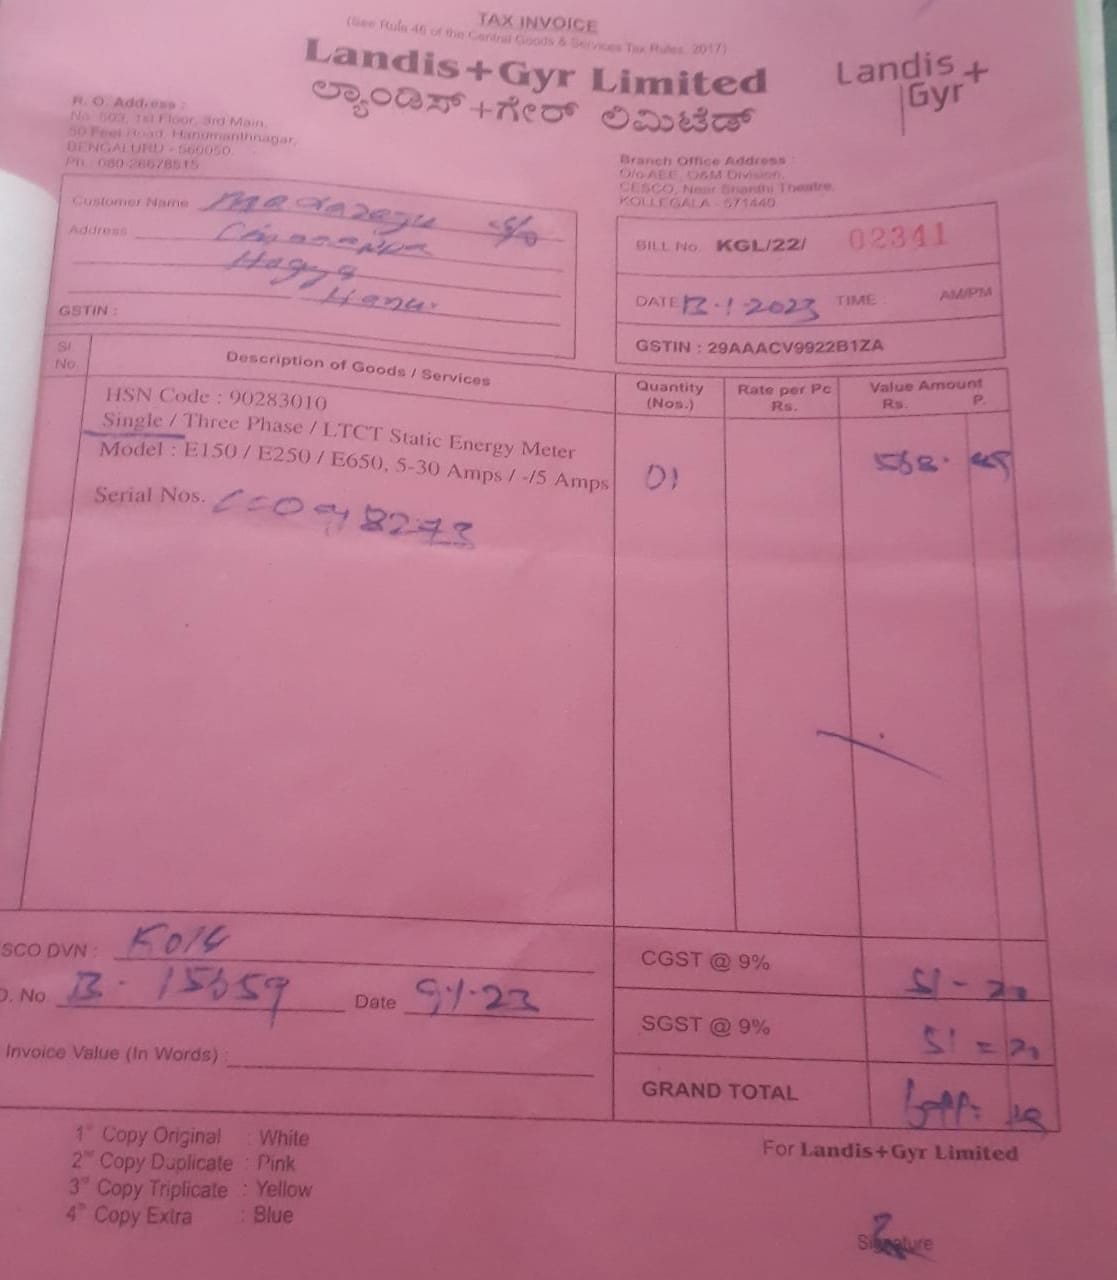 TAX INVOICE
(See Rule 46 of the Central Goods & Services Tax Rules, 2017)
Landis+Gyr Limited
ಲ್ಯಾಂಡಿಸ್+ಗೇರ್ ಲಿಮಿಟೆಡ್
Landis+
Gyr
R. O. Address :
No. 503, 1st Floor, 3rd Main,
50 Feet Road, Hanumanthnagar,
BENGALURU - 560050.
Ph : 080-26678515
Branch Office Address :
O/o AEE, O&M Division,
CESCO, Near Shanthi Theatre,
KOLLEGALA - 571440
Customer Name Madaraju S/o
Address
Hanur
GSTIN :
BILL No. KGL/22/ 02341
DATE 13-1-2023 TIME : AM/PM
GSTIN : 29AAACV9922B1ZA
Sl. No. Description of Goods / Services Quantity (Nos.) Rate per Pc Rs. Value Amount Rs. P.
HSN Code : 90283010
Single / Three Phase / LTCT Static Energy Meter
Model : E150 / E250 / E650, 5-30 Amps / -/5 Amps 01 568.
Serial Nos.
SCO DVN :
CGST @ 9% 51 -
No B. Date 9-1-23
SGST @ 9% 51 =
Invoice Value (In Words) :
GRAND TOTAL
1st Copy Original : White
2nd Copy Duplicate : Pink
3rd Copy Triplicate : Yellow
4th Copy Extra : Blue
For Landis+Gyr Limited
Signature